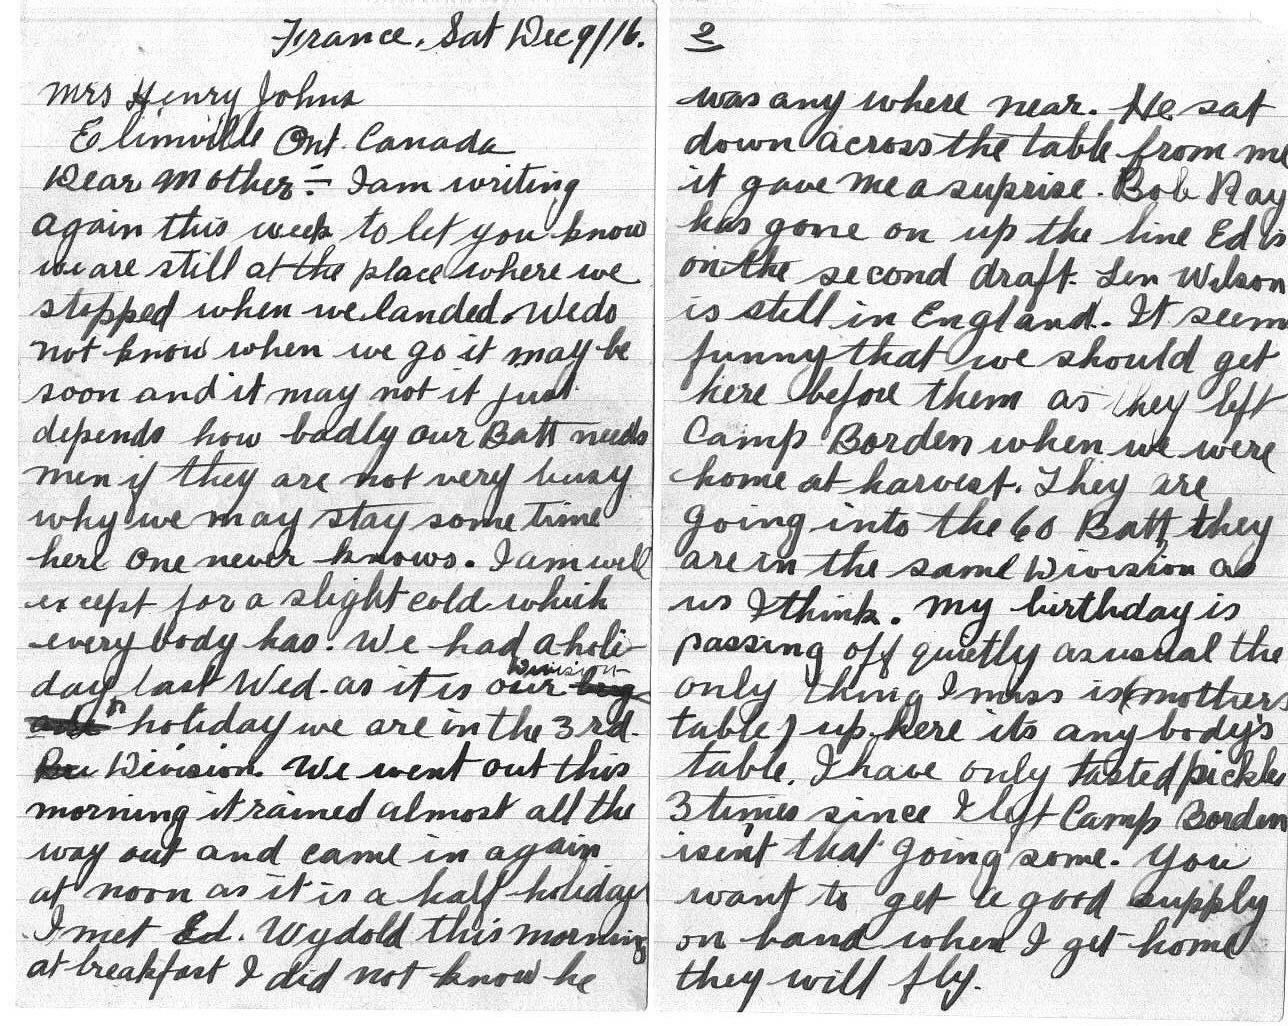 France. Sat Dec 9/16.
Mrs Henry Johns
Elimville Ont. Canada
Dear Mother:- I am writing
again this week to let you know
we are still at the place where we
stopped when we landed. We do
not know when we go it may be
soon and it may not it just
depends how badly our Batt needs
men if they are not very busy
why we may stay some time
here one never knows. I am well
except for a slight cold which
every body has. We had a holi-
day last Wed. as it is our Division
holiday we are in the 3rd.
Division. We went out this
morning it rained almost all the
way out and came in again
at noon as it is a half-holiday
I met Ed. Wydold this morning
at breakfast I did not know he
2
was any where near. He sat
down across the table from me
it gave me a suprise. Bob Ray
has gone on up the line Ed is
on the second draft. Len Wilson
is still in England. It seem
funny that we should get
here before them as they left
Camp Borden when we were
home at harvest. They are
going into the 60 Batt, they
are in the same Division as
us I think. My birthday is
passing off quietly as usual the
only thing I miss is (mothers
table) up here its any body's
table. I have only tasted pickle
3 times since I left Camp Borden
isent that going some. You
want to get a good supply
on hand when I get home
they will fly.